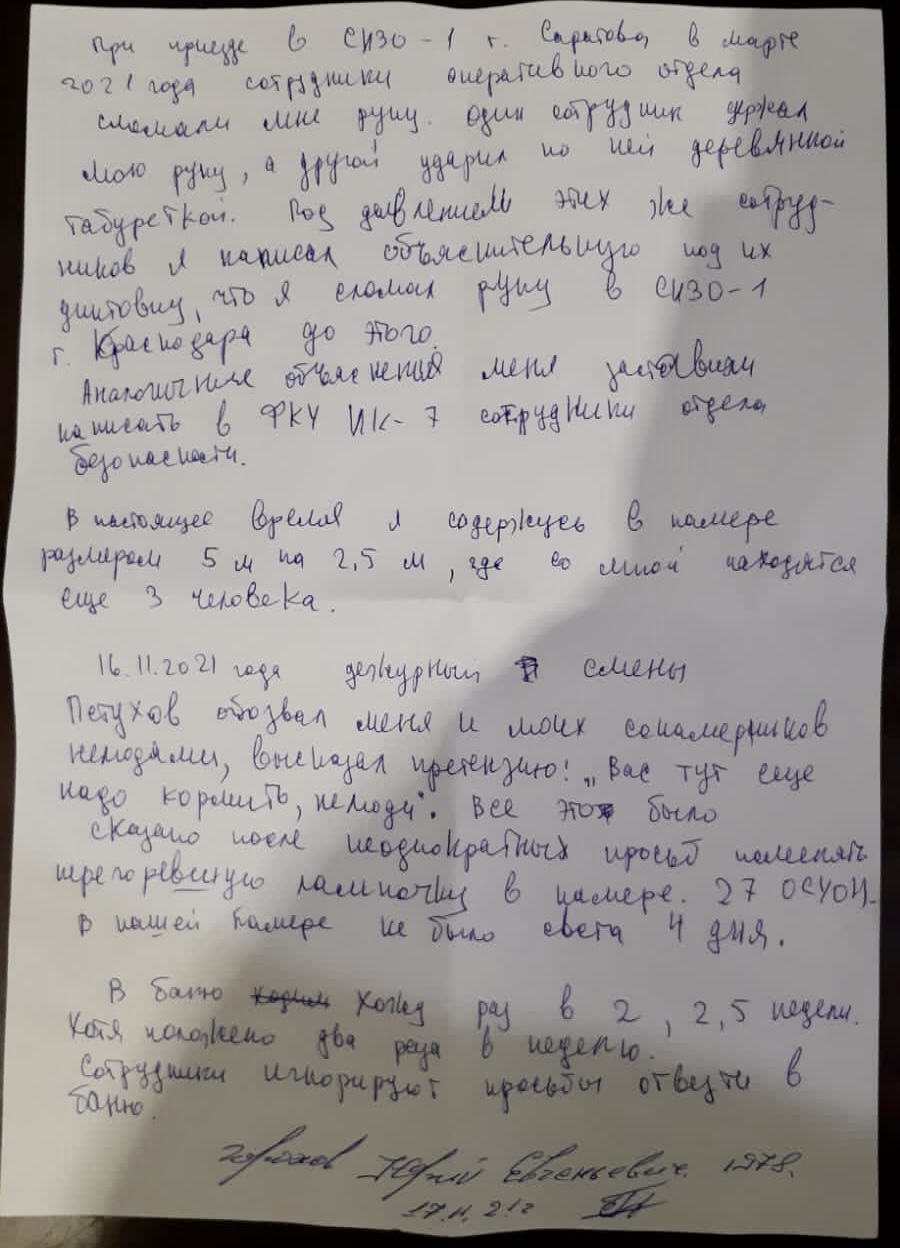 При приезде в СИЗО-1 г. Саратова в марте
2021 года сотрудники оперативного отдела
сломали мне руку. Один сотрудник держал
мою руку, а другой ударил по ней деревянной
табуреткой. Под давлением этих же сотруд-
ников я написал объяснительную под их
диктовку, что я сломал руку в СИЗО-1
г. Краснодара до этого.
Аналогичные объяснения меня заставили
написать в ФКУ ИК-7 сотрудники отдела
безопасности.
В настоящее время я содержусь в камере
размером 5 м на 2,5 м, где со мной находятся
еще 3 человека.
16.11.2021 года дежурный смены
Петухов обозвал меня и моих сокамерников
нелюдями, высказал претензию: „Вас тут еще
надо кормить, нелюди". Все это было
сказано после неоднократных просьб поменять
перегоревшую лампочку в камере. 27 ОСУОН.
В нашей камере не было света 4 дня.
В баню хожу раз в 2, 2,5 недели.
Хотя положено два раза в неделю.
Сотрудники игнорируют просьбы отвезти в
баню.
Юрий Евгеньевич. 1978.
17.11.21г